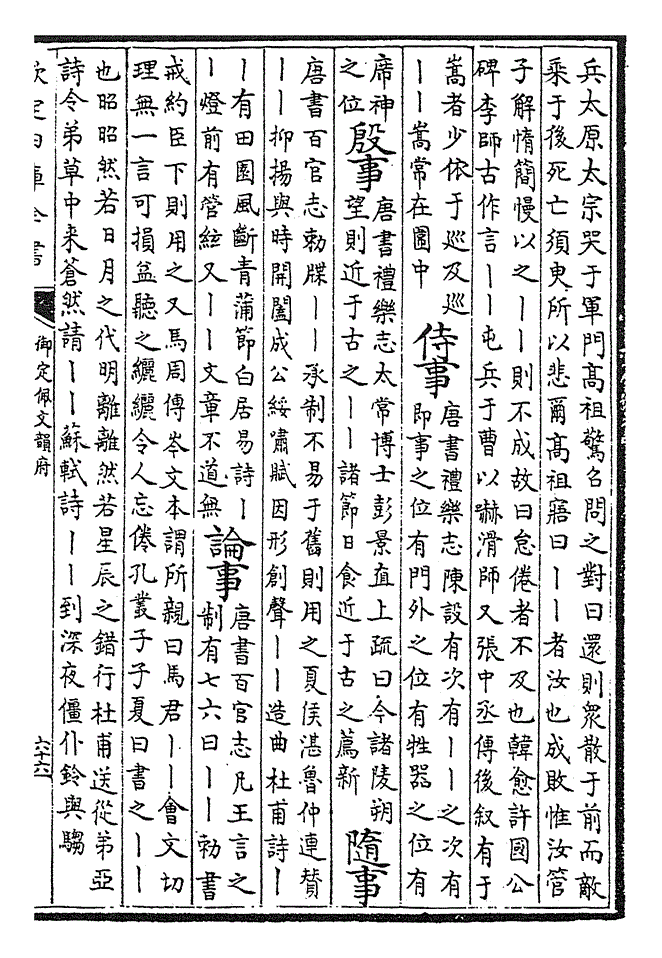 兵太原太宗哭于軍門高祖驚召問之對曰還則衆散于前而敵
乘于後死亡須臾所以悲爾高祖寤曰丨丨者汝也成敗惟汝管
子解惰簡慢以之丨丨則不成故曰怠倦者不及也韓愈許國公
碑李師古作言丨丨屯兵于曹以嚇滑師又張中丞傳後叙有于
嵩者少依于巡及巡
丨丨嵩常在圍中
侍事
唐書禮樂志陳設有次有丨丨之次有
即事之位有門外之位有牲器之位有
席神
之位
殷事
唐書禮樂志太常博士彭景直上疏曰今諸陵朔
望則近于古之丨丨諸節日食近于古之薦新
隨事
唐書百官志勅牒丨丨承制不易于舊則用之夏侯湛魯仲連贊
丨丨抑揚與時開闔成公綏嘯賦因形創聲丨丨造曲杜甫詩丨
丨有田園風斷青蒲節白居易詩丨
丨燈前有管絃又丨丨文章不道無
論事
唐書百官志凡王言之
制有七六曰丨丨勅書
戒約臣下則用之又馬周傳岑文本謂所親曰馬君丨丨會文切
理無一言可損益聽之纚纚令人忘倦孔叢子子夏曰書之丨丨
也昭昭然若日月之代明離離然若星辰之錯行杜甫送從弟亞
詩令弟草中来蒼然請丨丨蘇軾詩丨丨到深夜僵仆鈴與騶
欽定四庫全書
御定佩文韻府
六十六